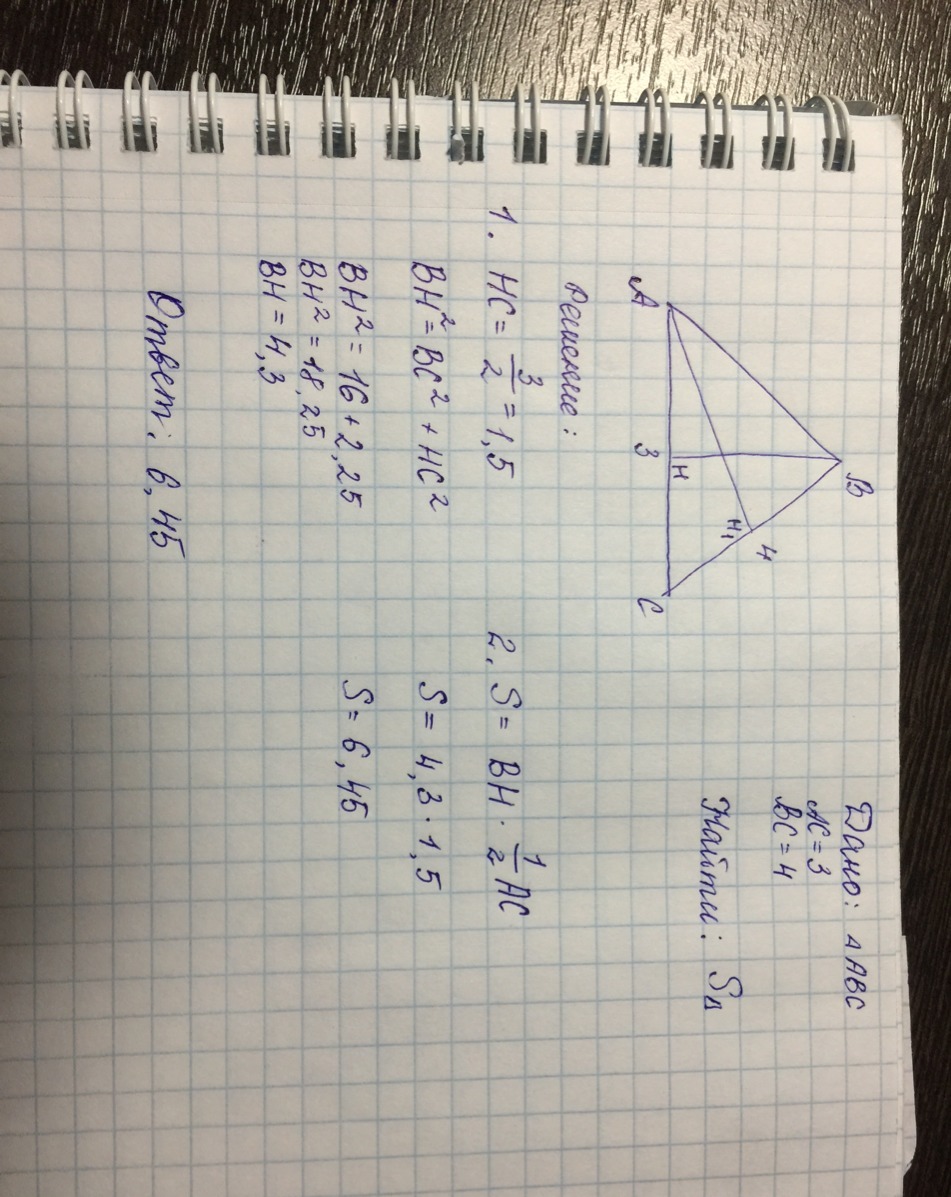 Дано: ΔABC
AC = 3
BC = 4
Найти: SΔ
B
4
H₁
A
H
3
C
Решение:
1. HC = 3/2 = 1,5
BH² = BC² + HC²
BH² = 16 + 2,25
BH² = 18,25
BH = 4,3
2. S = BH · 1/2 AC
S = 4,3 · 1,5
S = 6,45
Ответ: 6,45